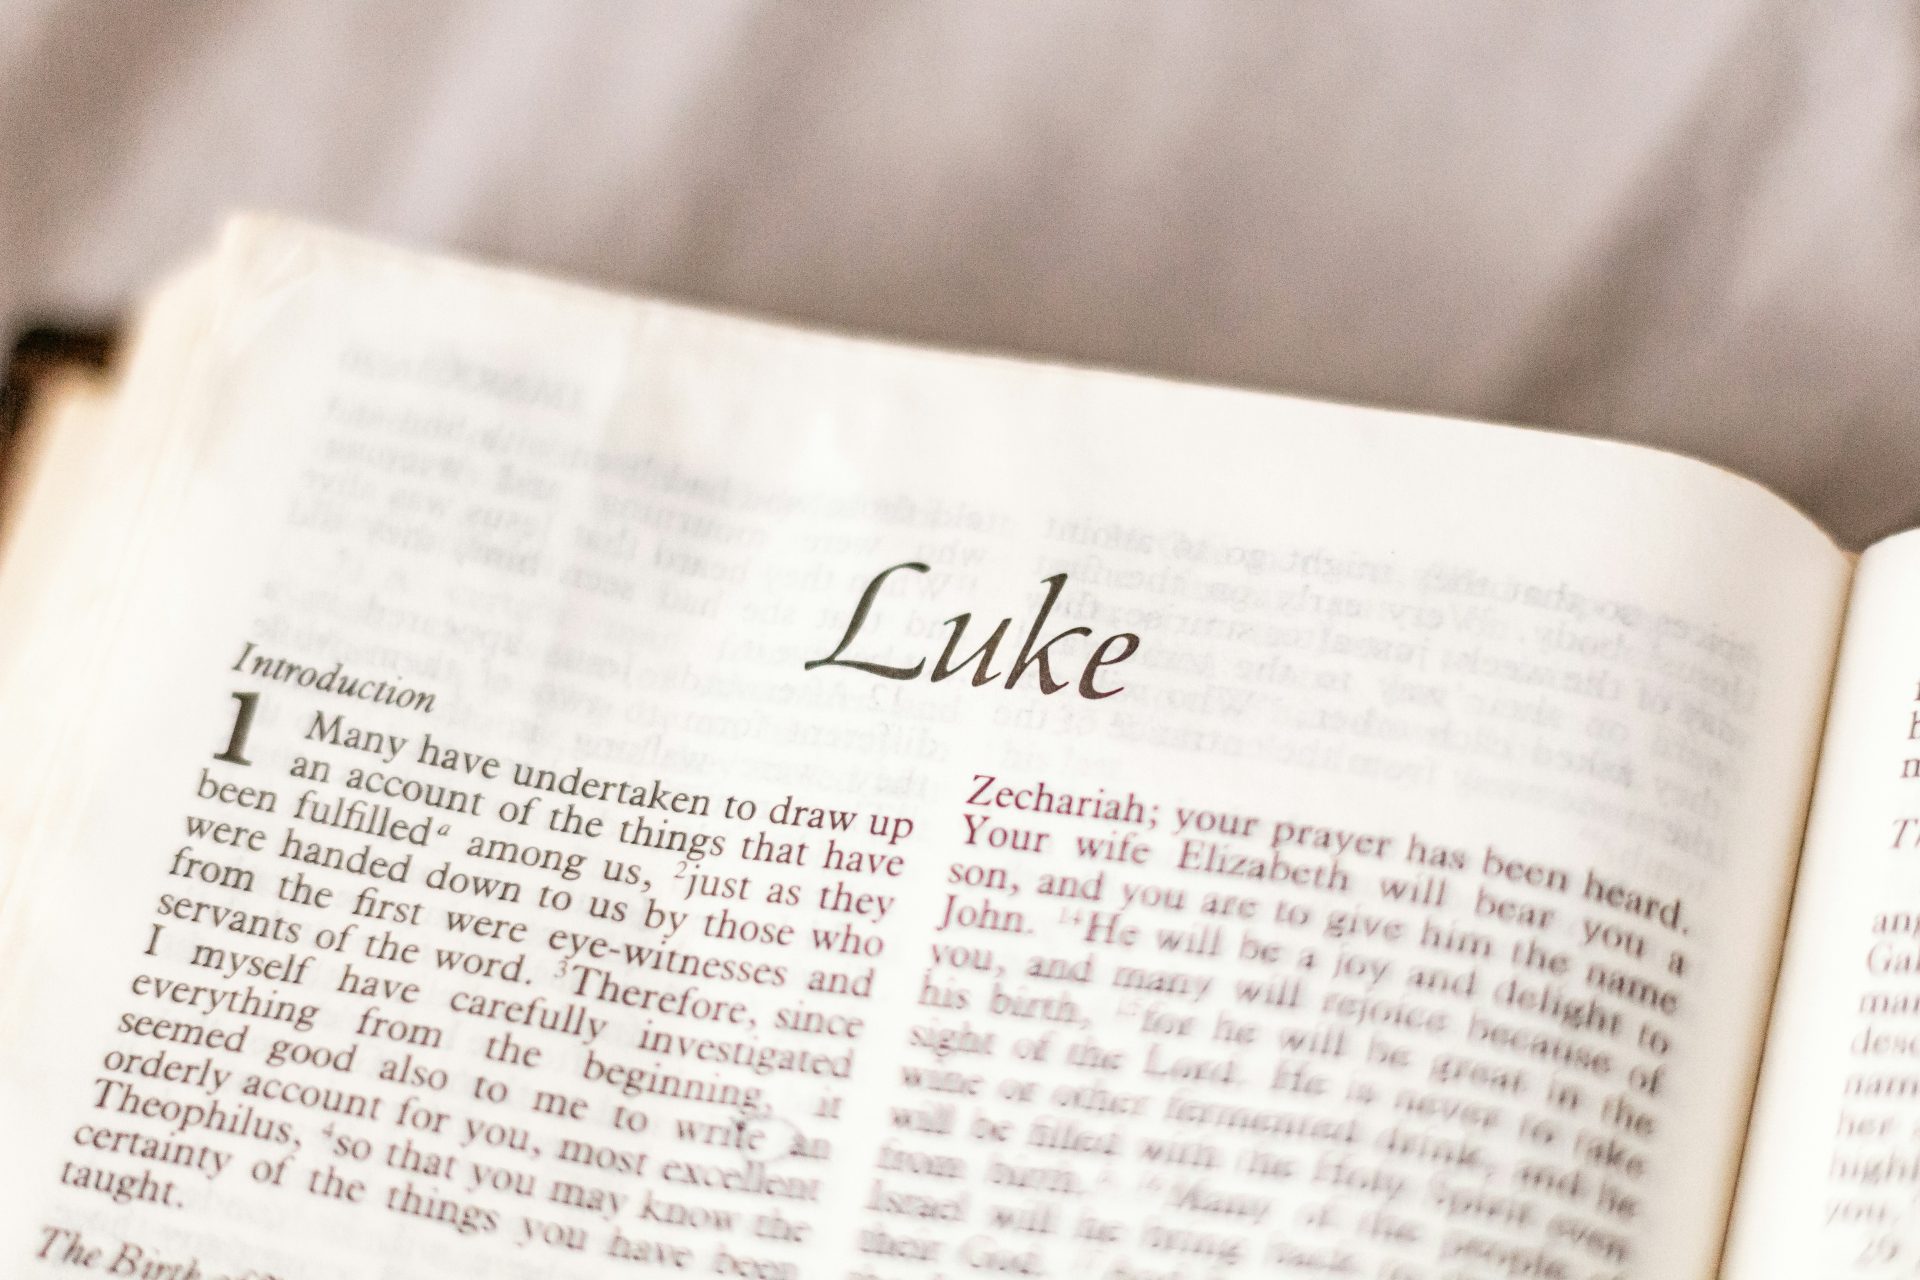 Luke
Introduction
1 Many have undertaken to draw up
an account of the things that have
been fulfilled a among us, 2 just as they
were handed down to us by those who
from the first were eye-witnesses and
servants of the word. 3 Therefore, since
I myself have carefully investigated
everything from the beginning, it
seemed good also to me to write an
orderly account for you, most excellent
Theophilus, 4 so that you may know the
certainty of the things you have been
taught.
The Birth of
Zechariah; your prayer has been heard.
Your wife Elizabeth will bear you a
son, and you are to give him the name
John. 14 He will be a joy and delight to
you, and many will rejoice because of
his birth, 15 for he will be great in the
sight of the Lord. He is never to take
wine or other fermented drink, and he
will be filled with the Holy Spirit even
from birth. 16 Many of the people of
Israel will he bring back to
their God.